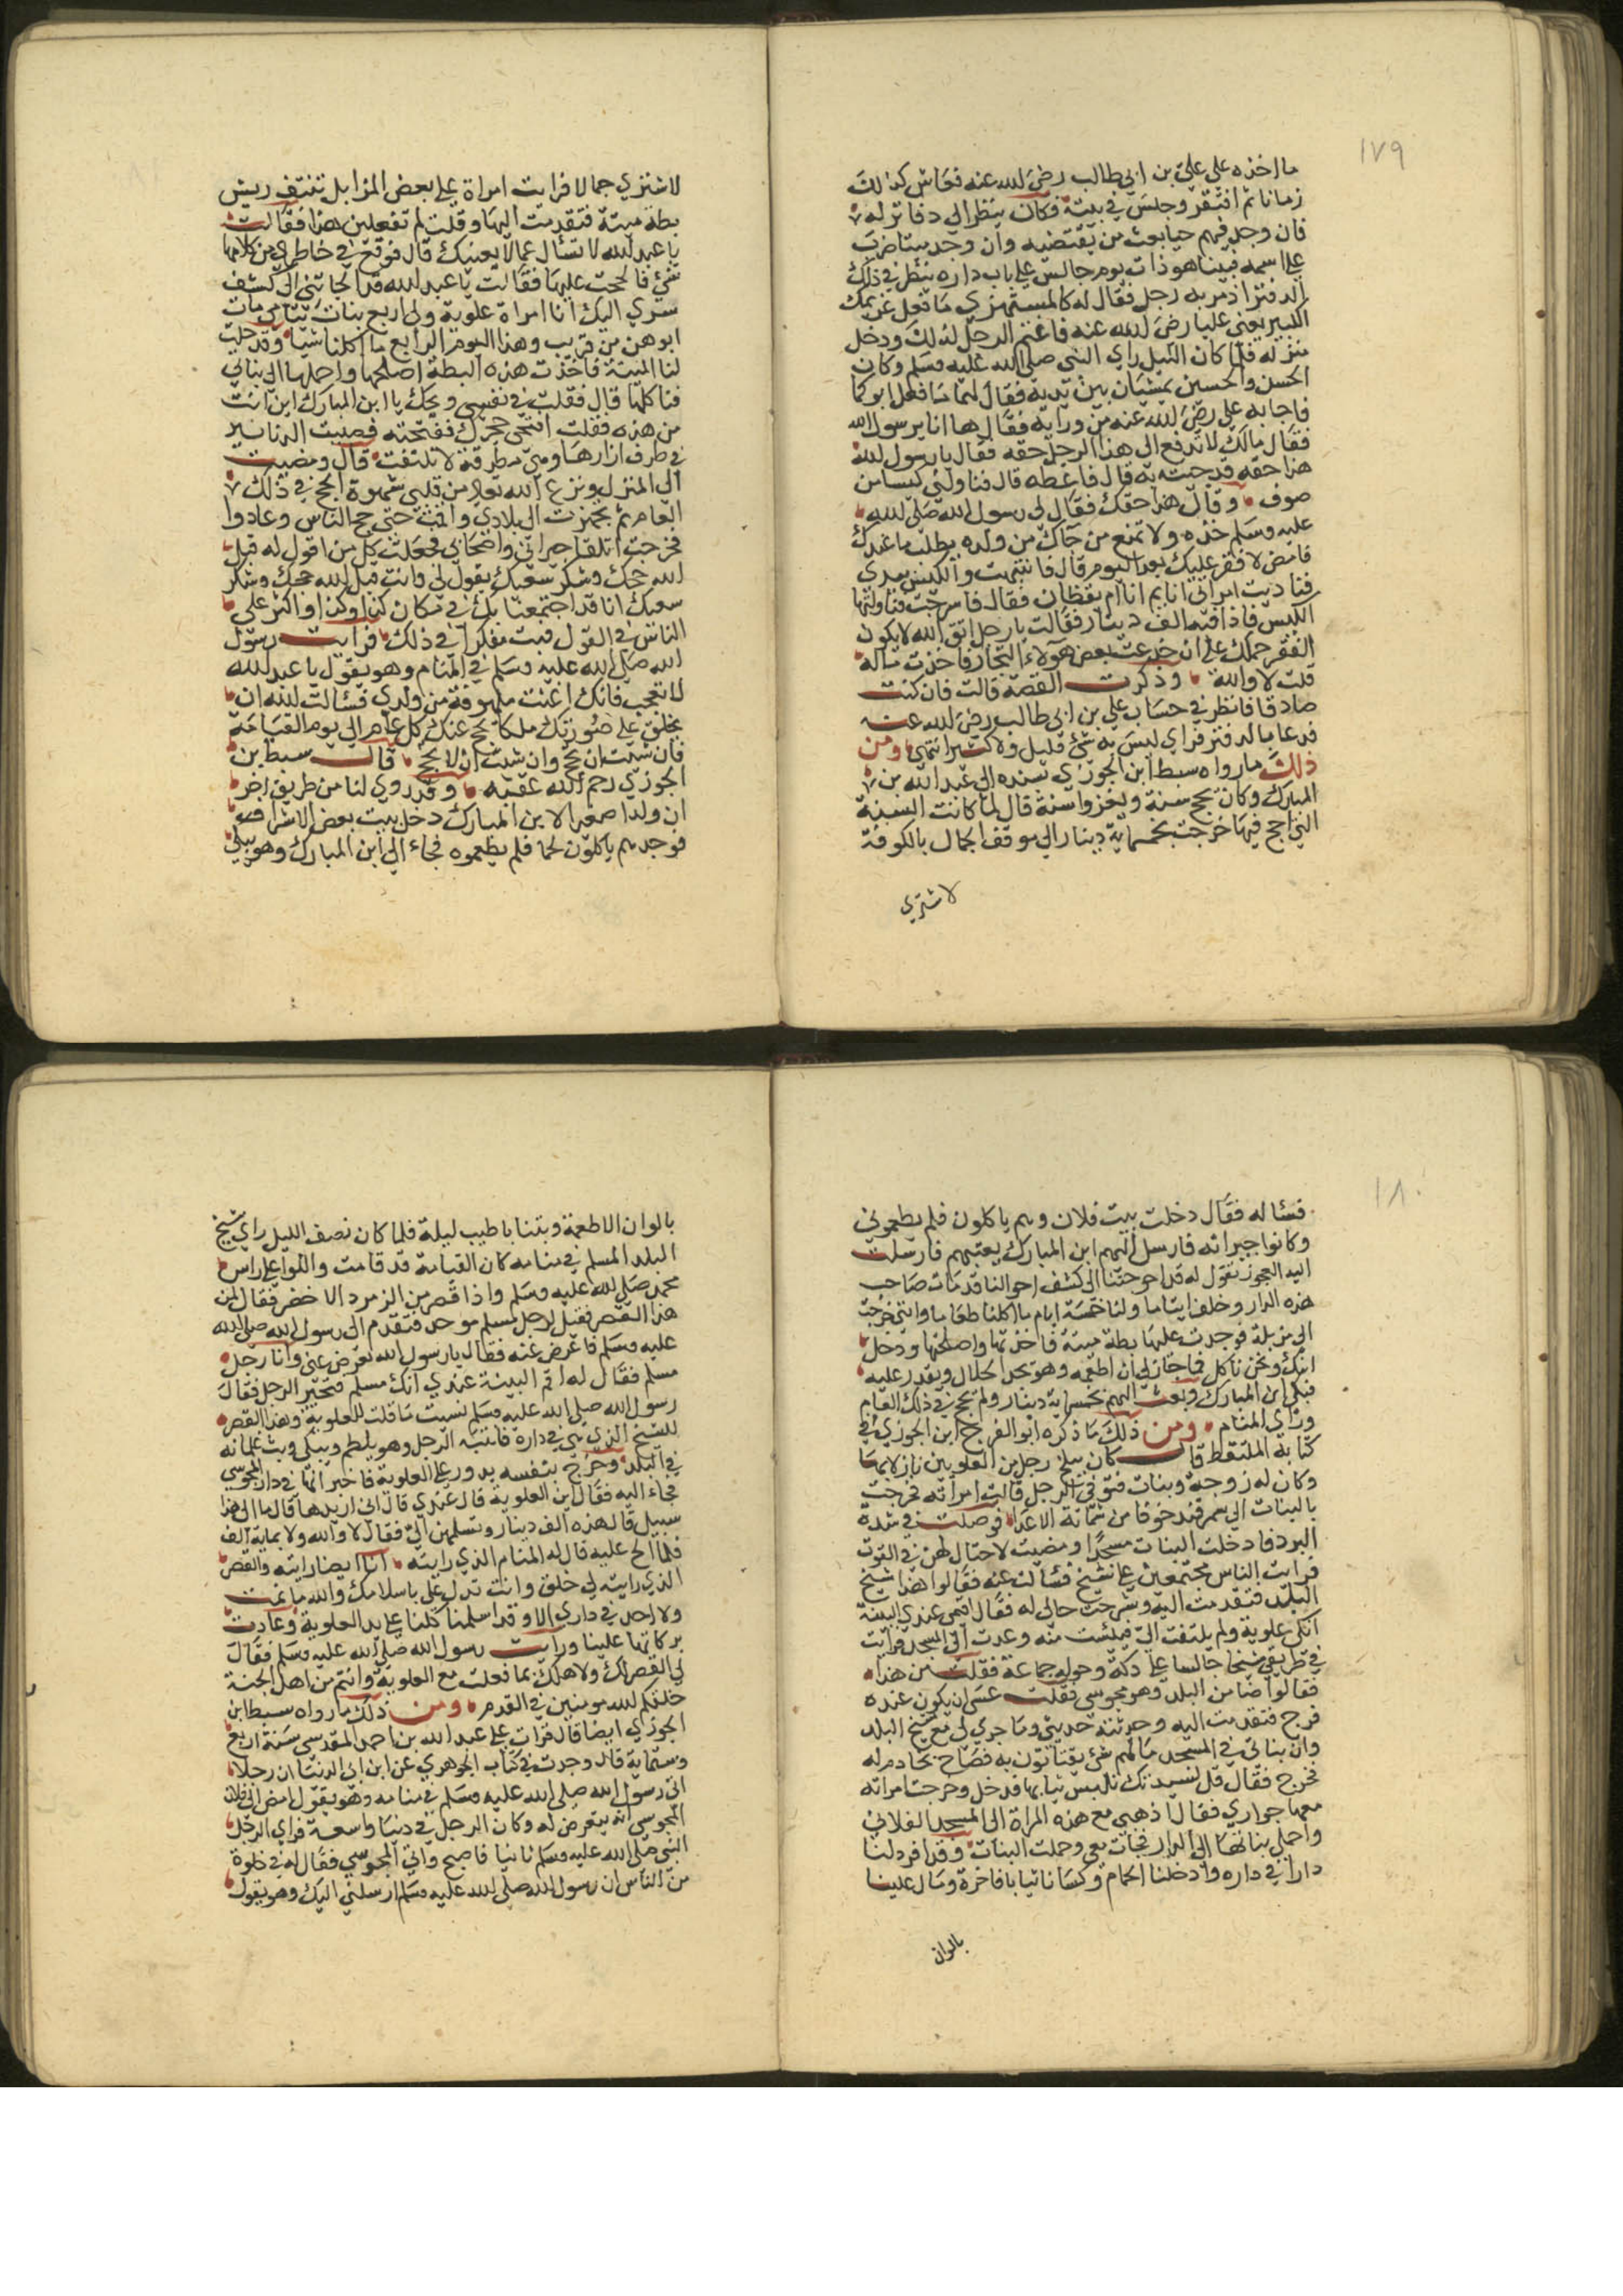 ١٧٩
ما اخذه على علي بن ابي طالب رضي الله عنه فعاش كذالك
زمانا ثم افتقر وجلس في بيته فكان ينظر الي دفاتر له
فان وجد فيهم حيا بعث من يقتضيه وان وجد ميتا ضرب
علي اسمه فبينا هو ذات يوم جالس علي باب داره ينظر في ذلك
الدفتر اذ مر به رجل فقال له كالمستهزي ما فعل غريمك
الكبير يعني عليا رضي الله عنه فاغتم الرجل لذلك ودخل
منزله فلما كان الليل راي النبي صلى الله عليه وسلم وكان
الحسن والحسين يمشيان بين يديه فقال لهما ما فعل ابوكما
فاجابه علي رضي الله عنه من ورايه فقال ها انا يرسول الله
فقال مالك لا تدفع الى هذا الرجل حقه فقال يا رسول الله
هذا حقه قد جيت به قال فاعطه قال فناولني كيسا من
صوف وقال هذا حقك فقال لي رسول الله صلى الله
عليه وسلم خذه ولا تمنع من جاك من ولده يطلب ما عندك
فامض لا فقر عليك بعد اليوم قال فانتبهت والكيس بيدي
فناديت امراتي انا يم انا ام يقظان فقال فاسرجت فناولتها
الكيس فاذا فيه الف دينار فقالت يا رجل اتق الله لا يكون
الفقر حملك علي ان خدعت بعض هولاء التجار فاخذت ماله
قلت لا والله وذكرت القصة قالت فان كنت
صادقا فانظر في حساب علي بن ابي طالب رضي الله عنه
فدعا بالدفتر فراي ليس به شي قليل ولا كثير انتهى ومن
ذلك ما رواه سبط ابن الجوزي بسنده الي عبد الله بن
المبارك وكان يحج سنة ويغزوا سنة قال لما كانت السنة
التي احج فيها خرجت بخمسماية دينار الي موقف الجمال بالكوفة
لاشتري
لاشتري جمالا فرايت امراة علي بعض المزابل تنتف ريش
بطة ميتة فتقدمت اليها وقلت لم تفعلين هذا فقالت
يا عبد الله لا تسأل عما لا يعنيك قال فوقع في خاطري من كلامها
شي فالححت عليها فقالت يا عبد الله قد الجاتني الي كشف
سري اليك انا امراة علوية ولي اربع بنات يتامي مات
ابوهن من قريب وهذا اليوم الرابع ما اكلنا شيا وقد حلت
لنا الميتة فاخذت هذه البطة اصلحها واحملها الي بناتي
فناكلها قال فقلت في نفسي ويحك يا ابن المبارك اين انت
من هذه فقلت افتحي حجرك ففتحته فصببت الدنانير
في طرف ازارها وهي مطرقة لا تلتفت قال ومضيت
الي المنزل ونزع الله تعالى من قلبي شهوة الحج في ذلك
العام ثم تجهزت الي بلادي واقمت حتى حج الناس وعادوا
فخرجت اتلقا جيراني واصحابي فجعلت كل من اقول له قبل
الله حجك وشكر سعيك يقول لي وانت قبل الله حجك وشكر
سعيك انا قد اجتمعنا بك في مكان كذا وكذا واكثر علي
الناس في القول فبت مفكرا في ذلك فرايت رسول
الله صلى الله عليه وسلم في المنام وهو يقول يا عبد الله
لا تعجب فانك اغثت ملهوفة من ولدي فسالت الله ان
يخلق علي صورتك ملكا يحج عنك كل عام الي يوم القيامة
فان شيت ان تحج وان شيت ان لا تحج قال سبط بن
الجوزي رحم الله عقبه وقد روي لنا من طريق اخر
ان ولدا صغيرا لابن المبارك دخل بيت بعض الاشراف
فوجدهم ياكلون لحما فلم يطعموه فجاء الي ابن المبارك وهو يبكي
١٨٠
فسئاله فقال دخلت بيت فلان وهم ياكلون فلم يطعموني
وكانوا جيرانه فارسل اليهم ابن المبارك يعتبهم فارسلت
اليه العجوز تقول له قد احوجتنا الي كشف احوالنا قد مات صاحب
هذه الدار وخلف ايتاما ولنا خمسة ايام ما اكلنا طعاما وانني خرجت
الي مزبلة فوجدت عليها بطة ميتة فاخذتها واصلحتها ودخل
ابنك ونحن ناكل فما جاز لي ان اطعمه وهو يجد الحلال ويقدر عليه
فبكي ابن المبارك وبعث اليهم بخمسماية دينار ولم يحج في ذلك العام
وراي المنام ومن ذلك ما ذكره ابو الفرج ابن الجوزي في
كتابه الملتقط قال كان ببلخ رجل من العلويين نازلا بها
وكان له زوجة وبنات فتوفي الرجل قالت امراته فخرجت
بالبنات الي سمرقند خوفا من شماتة الاعدا فوصلت في شدة
البرد فادخلت البنات مسجدا ومضيت لاحتال لهن في القوت
فرايت الناس مجتمعين علي شيخ فسئالت عنه فقالوا هذا شيخ
البلد فتقدمت اليه وشرحت حالي له فقال اقمي عندي البينة
انكي علوية ولم يلتفت الي فيئست منه وعدت الي المسجد فرايت
في طريقي شيخا جالسا علي دكة وحوله جماعة فقلت من هذا
فقالوا ضامن البلد وهو مجوسي فقلت عسي ان يكون عنده
فرج فتقدمت اليه وحدثته حديثي وما جري لي مع شيخ البلد
وان بناتي في المسجد مالهم شي يقتاتون به فصاح بخادم له
فخرج فقال قل لسيدتك تلبس ثيابها فدخل وخرجت امراته
معها جواري فقال اذهبي مع هذه المراة الي المسجد الفلاني
واحملي بناتها الي الدار فجات معي وحملت البنات وقد افرد لنا
دارا في داره وادخلنا الحمام وكسانا ثيابا فاخرة ومال علينا
بالوان
بالوان الاطعمة وبتنا باطيب ليلة فلما كان نصف الليل راي شيخ
البلد المسلم في منامه كان القيامة قد قامت واللوا علي راس
محمد صلى الله عليه وسلم واذا قصر من الزمرد الاخضر فقال لمن
هذا القصر فقيل لرجل مسلم موحد فتقدم الي رسول الله صلى الله
عليه وسلم فاعرض عنه فقال يا رسول الله تعرض عني وانا رجل
مسلم فقال له اقم البينة عندي انك مسلم فتحير الرجل فقال
رسول الله صلى الله عليه وسلم نسيت ما قلت للعلوية وهذا القصر
للشيخ الذي هي في داره فانتبه الرجل وهو يلطم ويبكي وبث غلمانه
في البلد وخرج بنفسه يدور علي العلوية فاخبر انها في دار المجوسي
فجاء اليه فقال اين العلوية قال عندي قال اني اريدها قال ما الي هذا
سبيل قال هذه الف دينار وتسلمهن الي فقال لا والله ولا بماية الف
فلما الح عليه قال له المنام الذي رايته انا ايضا رايته والقصر
الذي رايته لي خلق وانت تدل علي باسلامك والله ما نمت
ولا احد في داري الا وقد اسلمنا كلنا علي يد العلوية وعادت
بركاتها علينا ورايت رسول الله صلى الله عليه وسلم فقال
لي القصر لك ولاهلك بما فعلت مع العلوية وانتم من اهل الجنة
خلقكم الله مومنين في القدم ومن ذلك ما رواه سبط ابن
الجوزي ايضا قال قرات علي عبد الله بن احمد المقدسي سنة اربع
وستماية قال وجدت في كتاب الجوهري عن ابن ابي الدنيا ان رجلا
اتي رسول الله صلى الله عليه وسلم في منامه وهو يقول امض الي فلان
المجوسي انه يتعرض له وكان الرجل في دنيا واسعة فراي الرجل
النبي صلى الله عليه وسلم ثانيا فاصبح واتي المجوسي فقال له في خلوة
من الناس ان رسول الله صلى الله عليه وسلم ارسلني اليك وهو يقول